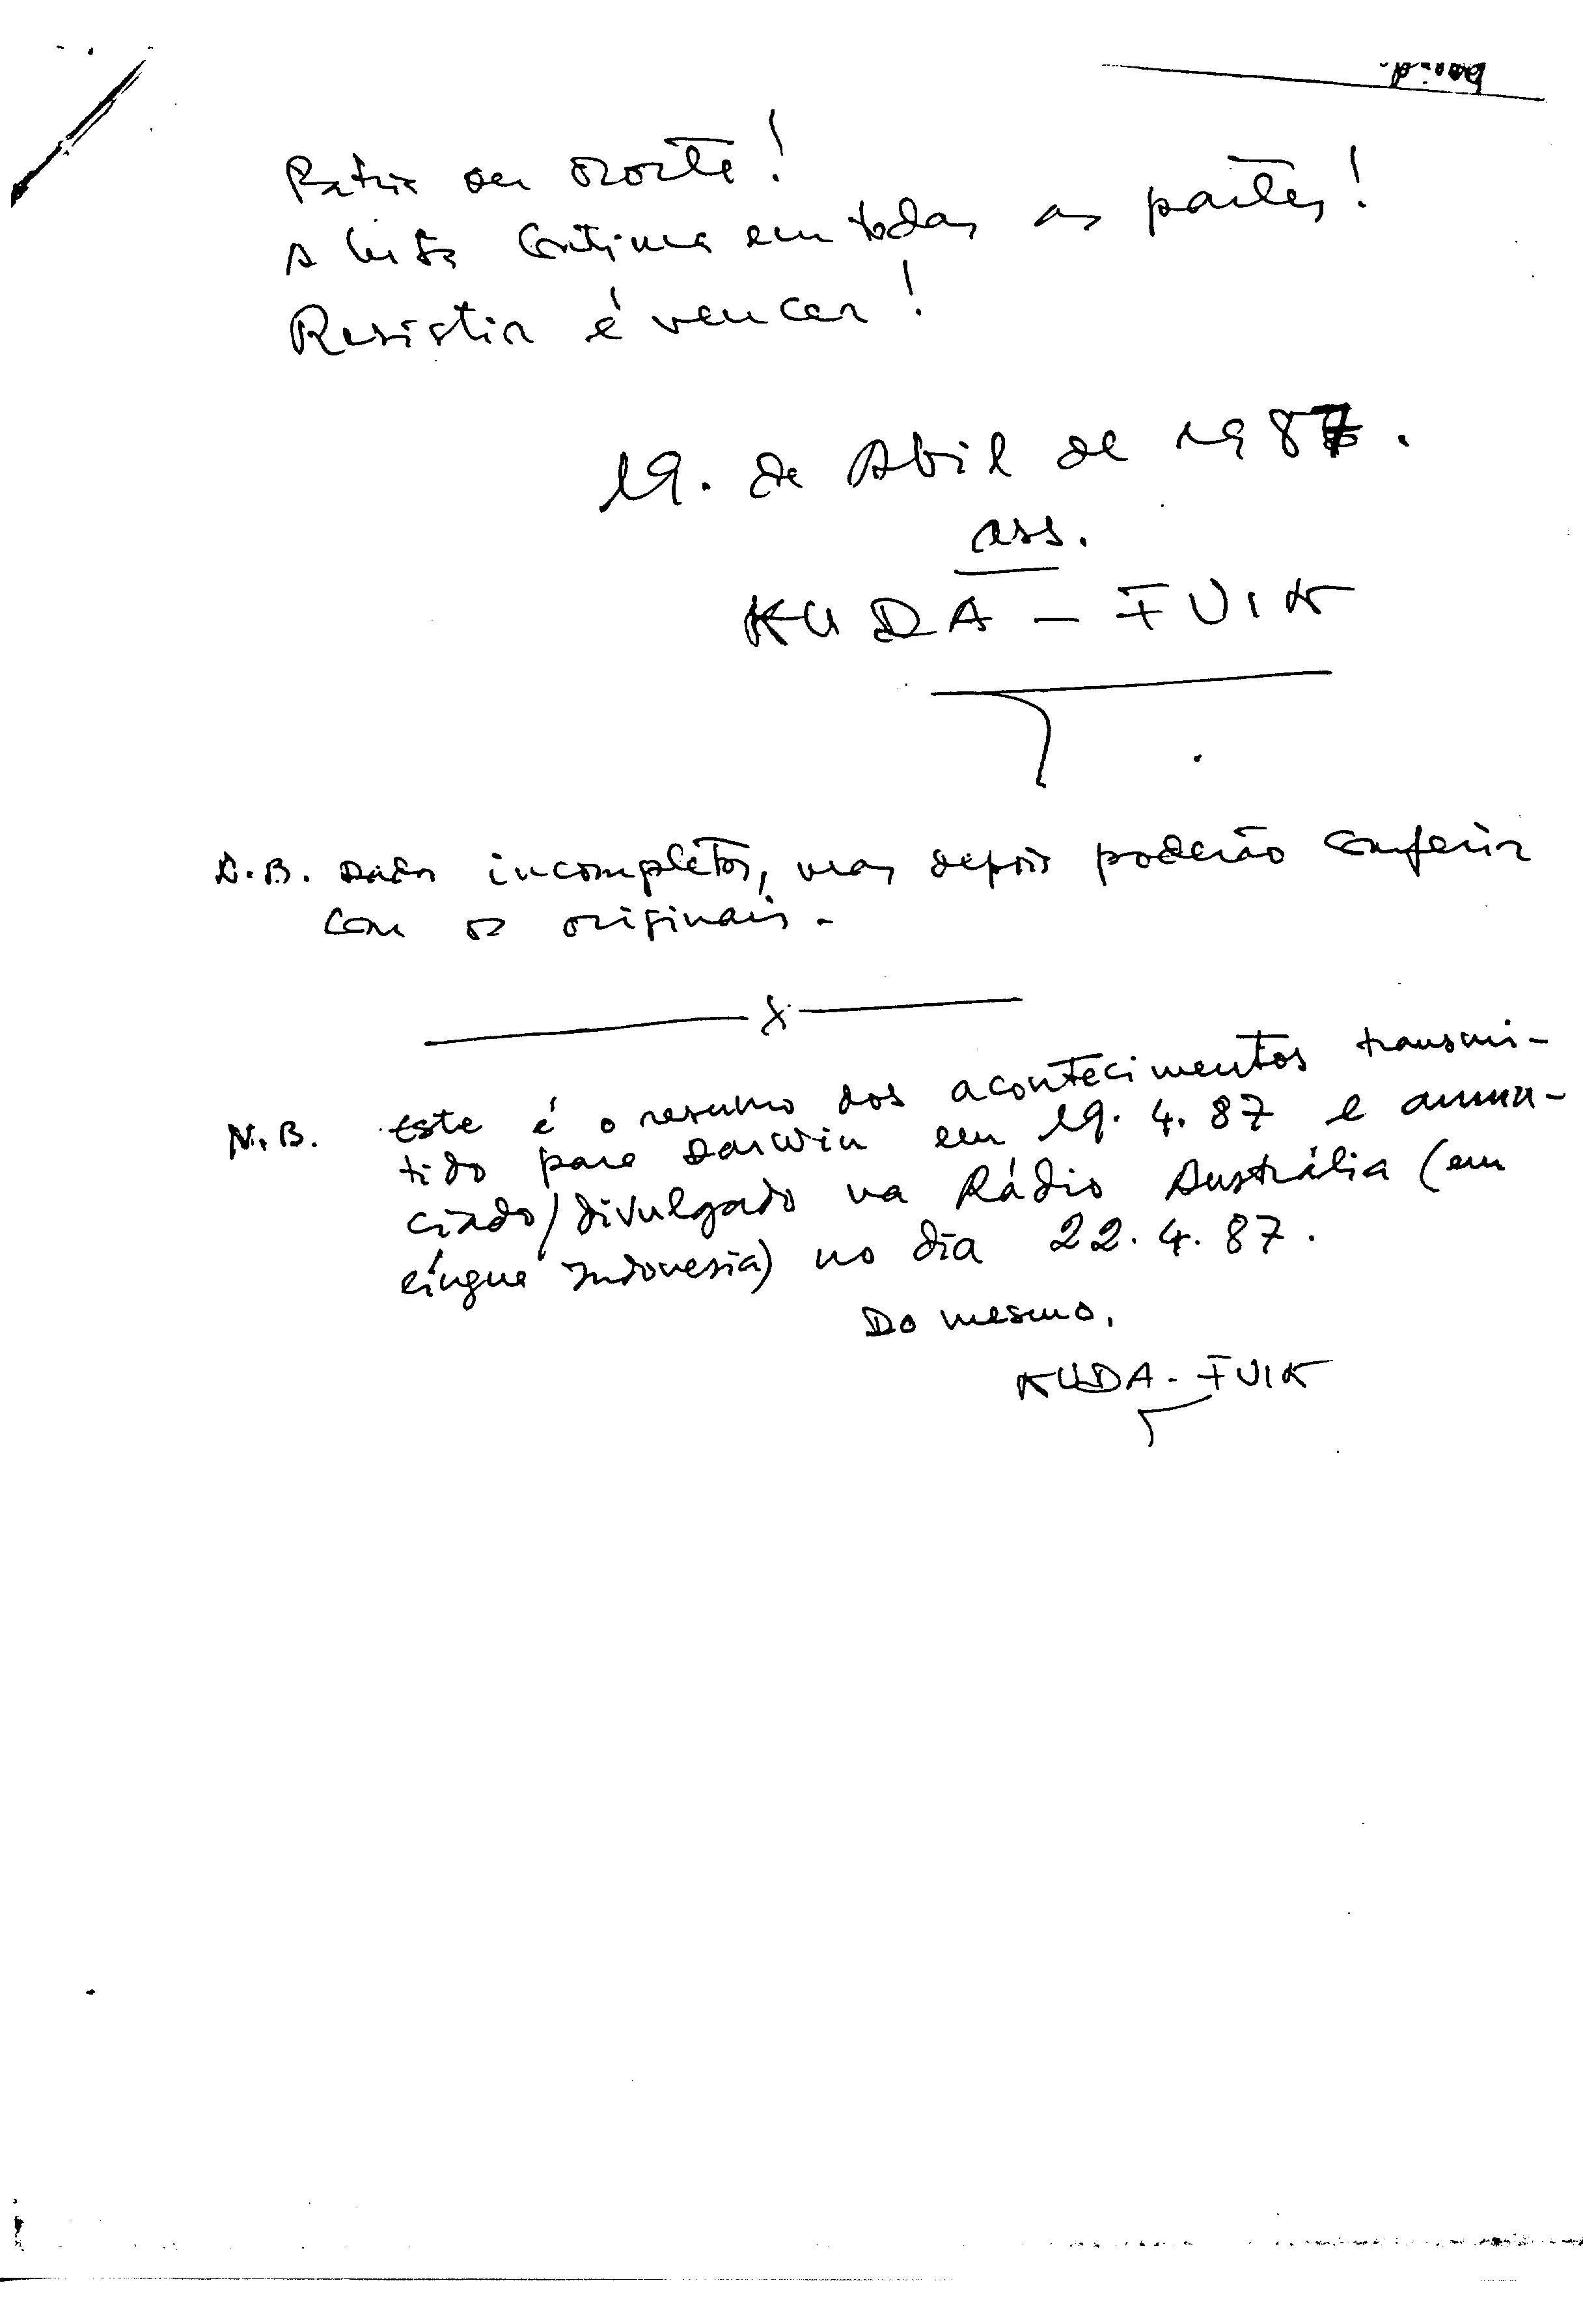 Patria ou morte!
A luta continua em todas as partes!
Resistir é vencer!
19. de Abril de 1987.
ass.
KUDA - FUIK
N.B. Dados incompletos, mas depois poderão conferir
com os originais.
x
N.B. Este é o resumo dos acontecimentos transmi-
tido para Darwin em 19.4.87 e anun-
ciado/divulgado na Rádio Austrália (em
língua Indonesia) no dia 22.4.87.
Do mesmo,
KUDA - FUIK